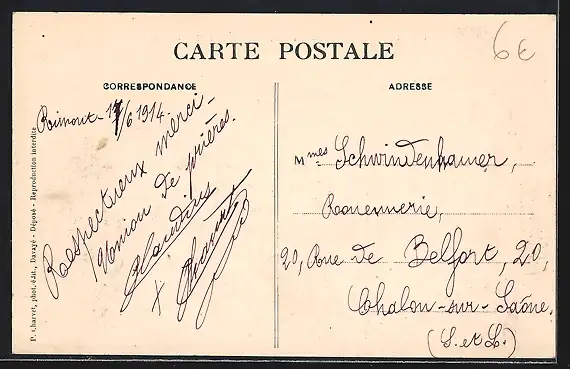 CARTE POSTALE
6€
CORRESPONDANCE
ADRESSE
Rimont - 17/6 1914.
Respectueux merci -
Union de prières.
P. Charvet, phot.-édit., Davayé - Déposé - Reproduction interdite
Mmes Schwindenhamer,
Rouennerie,
20, Rue de Belfort, 20,
Chalon-sur-Saône.
(S. et L.)